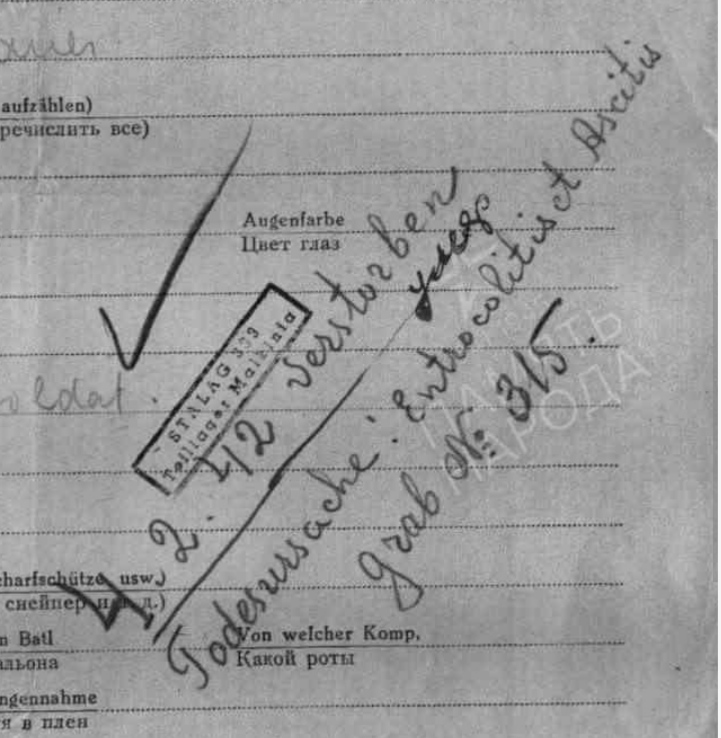 aufzählen)
речислить все)
Augenfarbe
Цвет глаз
STALAG 333
Teillager Malkinia
4 2. 42 verstorben
умер
Todesursache: Entrocolitis et Ascitis
Grab №: 315.
ПАМЯТЬ
НАРОДА
oldat.
charfschütze usw.)
снейпер и т. д.)
n Batl
альона
Von welcher Komp.
Какой роты
ngennahme
я в плен